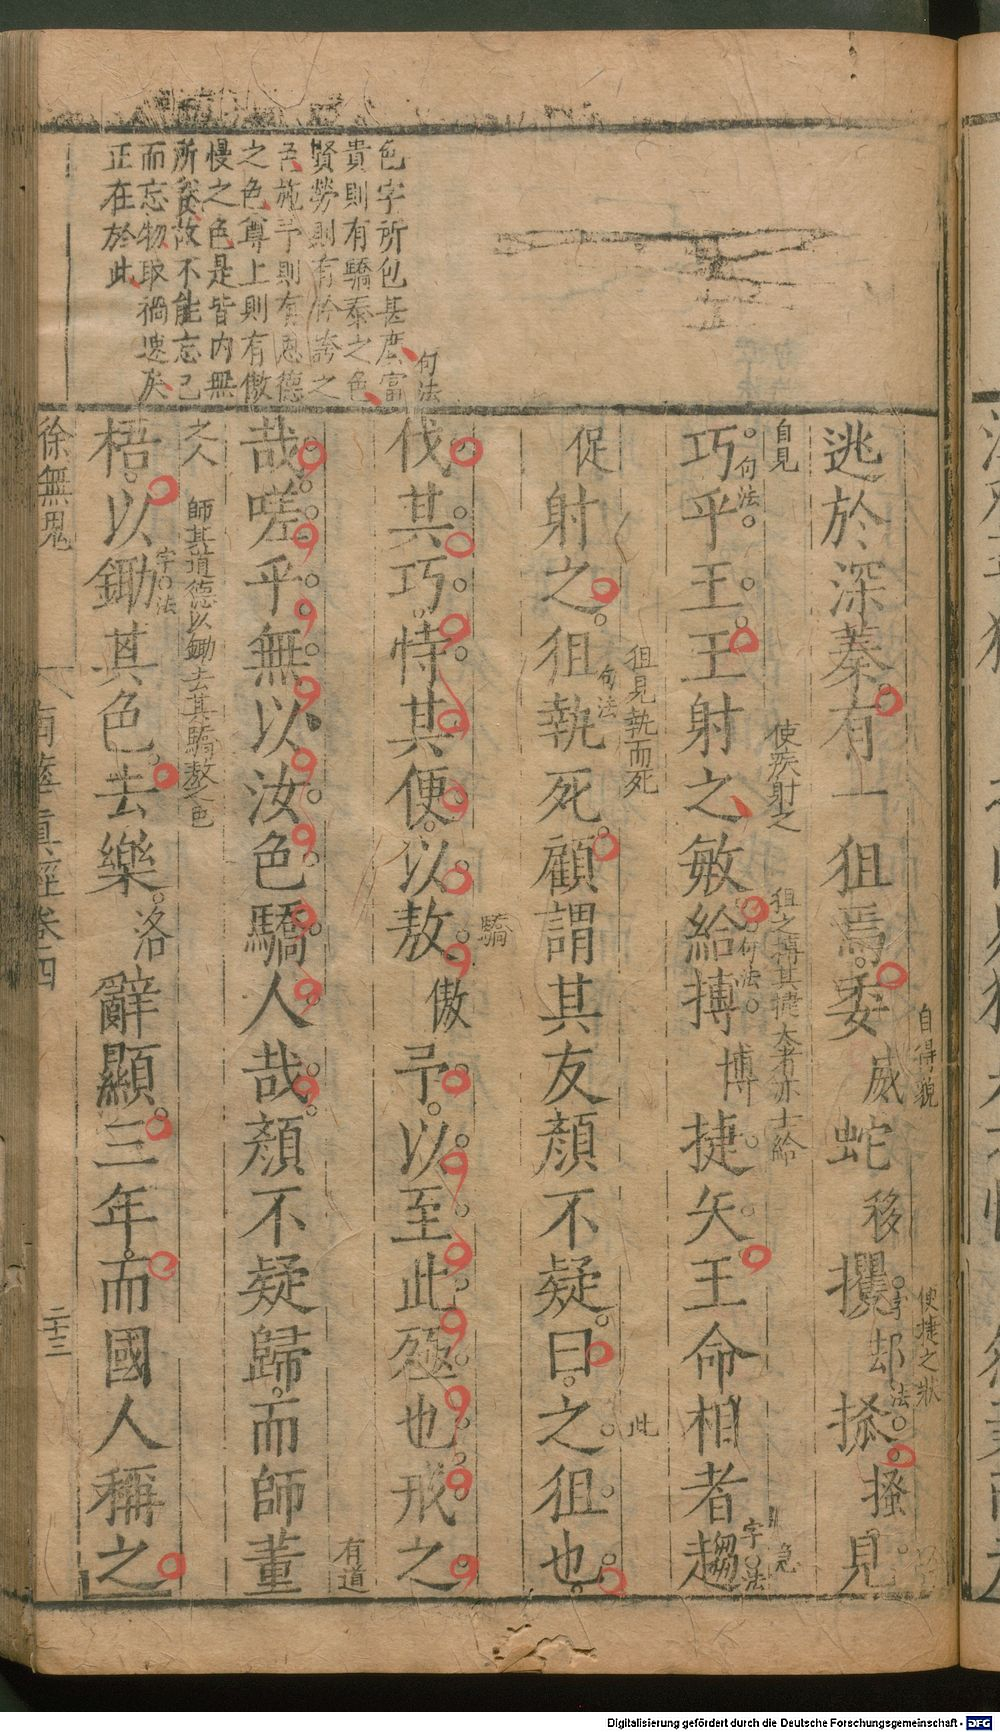 色字所包甚廣富
貴則有驕泰之色
賢勞則有矜誇之
色施予則有恩德
之色尊上則有傲
慢之色是皆内無
所養故不能忘己
而忘物取禍速矣
正在於此
自得貌
便捷之狀
逃於深蓁有一狙焉委威蛇移攫却搔搔見
字法
自見
使疾射之
狙之搏其捷矢者亦士給
急
巧乎王王射之敏給搏博捷矢王命相者趨
句法
句法
字法
狙見執而死
此
促射之狙執死顧謂其友顔不疑曰之狙也
句法
句法
驕
伐其巧恃其便以敖傲予以至此殛也戒之
有道
哉嗟乎無以汝色驕人哉顔不疑歸而師董
之人
師其道德以鋤去其驕敖之色
梧以鋤其色去樂洛辭顯三年而國人稱之
字法
徐無鬼
南華真經卷四
二十三
Digitalisierung gefördert durch die Deutsche Forschungsgemeinschaft - DFG